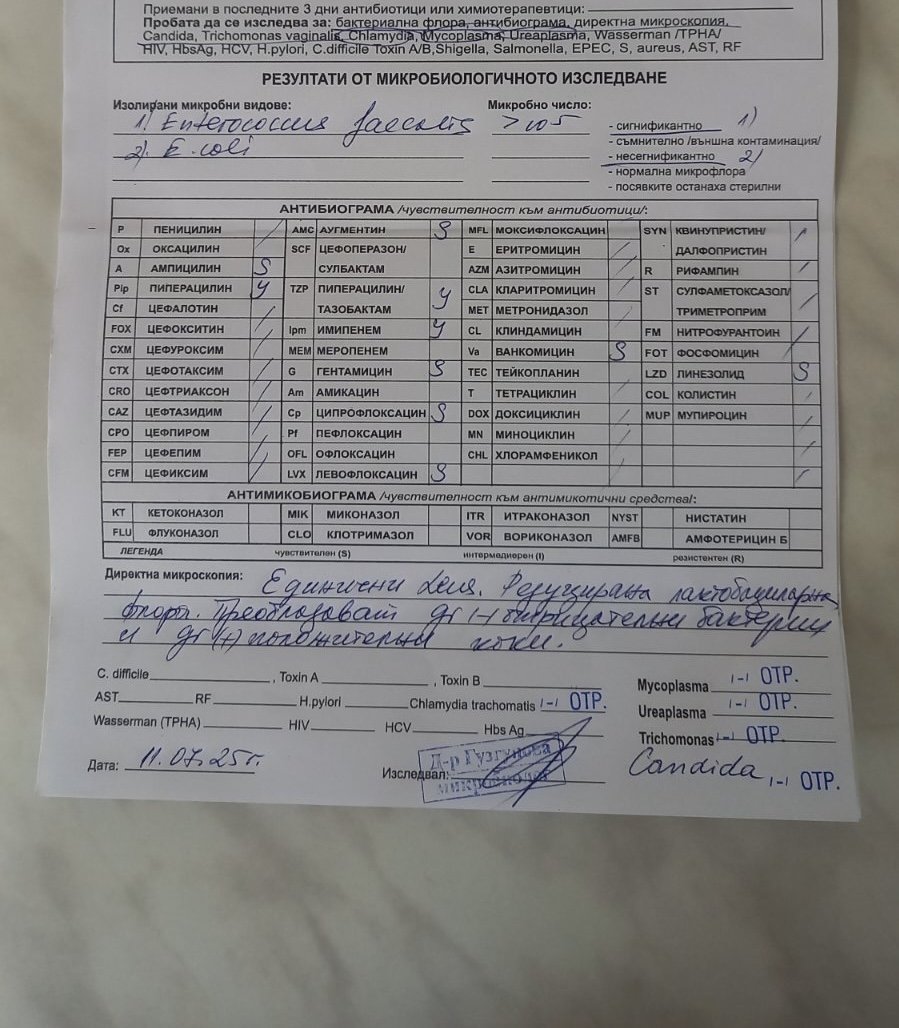 Приемани в последните 3 дни антибиотици или химиотерапевтици:
Пробата да се изследва за: бактериална флора, антибиограма, директна микроскопия,
Candida, Trichomonas vaginalis, Chlamydia, Mycoplasma, Ureaplasma, Wasserman /TPHA/
HIV, HbsAg, HCV, H.pylori, C.difficile Toxin A/B,Shigella, Salmonella, EPEC, S, aureus, AST, RF
РЕЗУЛТАТИ ОТ МИКРОБИОЛОГИЧНОТО ИЗСЛЕДВАНЕ
Изолирани микробни видове: Микробно число:
1) Enterococcus faecalis >105 - сигнификантно 1)
2) E.coli - съмнително /външна контаминация/
- несегнификантно 2)
- нормална микрофлора
- посявките останаха стерилни
АНТИБИОГРАМА /чувствителност към антибиотици/:
P ПЕНИЦИЛИН / AMC АУГМЕНТИН S MFL МОКСИФЛОКСАЦИН SYN КВИНУПРИСТИН/ /
Ox ОКСАЦИЛИН / SCF ЦЕФОПЕРАЗОН/ E ЕРИТРОМИЦИН / ДАЛФОПРИСТИН
A АМПИЦИЛИН S СУЛБАКТАМ AZM АЗИТРОМИЦИН / R РИФАМПИН /
Pip ПИПЕРАЦИЛИН У TZP ПИПЕРАЦИЛИН/ У CLA КЛАРИТРОМИЦИН / ST СУЛФАМЕТОКСАЗОЛ/ /
Cf ЦЕФАЛОТИН / ТАЗОБАКТАМ MET МЕТРОНИДАЗОЛ / ТРИМЕТРОПРИМ
FOX ЦЕФОКСИТИН / Ipm ИМИПЕНЕМ У CL КЛИНДАМИЦИН / FM НИТРОФУРАНТОИН /
CXM ЦЕФУРОКСИМ / MEM МЕРОПЕНЕМ Va ВАНКОМИЦИН S FOT ФОСФОМИЦИН /
CTX ЦЕФОТАКСИМ / G ГЕНТАМИЦИН S TEC ТЕЙКОПЛАНИН LZD ЛИНЕЗОЛИД S
CRO ЦЕФТРИАКСОН / Am АМИКАЦИН T ТЕТРАЦИКЛИН / COL КОЛИСТИН /
CAZ ЦЕФТАЗИДИМ / Cp ЦИПРОФЛОКСАЦИН S DOX ДОКСИЦИКЛИН / MUP МУПИРОЦИН /
CPO ЦЕФПИРОМ / Pf ПЕФЛОКСАЦИН MN МИНОЦИКЛИН / /
FEP ЦЕФЕПИМ / OFL ОФЛОКСАЦИН CHL ХЛОРАМФЕНИКОЛ / /
CFM ЦЕФИКСИМ / LVX ЛЕВОФЛОКСАЦИН S / /
АНТИМИКОБИОГРАМА /чувствителност към антимикотични средства/:
KT КЕТОКОНАЗОЛ MIK МИКОНАЗОЛ ITR ИТРАКОНАЗОЛ NYST НИСТАТИН
FLU ФЛУКОНАЗОЛ CLO КЛОТРИМАЗОЛ VOR ВОРИКОНАЗОЛ AMFB АМФОТЕРИЦИН Б
ЛЕГЕНДА чувствителен (S) интермедиерен (I) резистентен (R)
Директна микроскопия: Единични Leu. Редуцирана лактобациларна
флора. Преобладават gr (-) отрицателни бактерии
и gr (+) положителни коки.
C. difficile , Toxin A , Toxin B Mycoplasma (-) ОТР.
AST RF H.pylori Chlamydia trachomatis (-) ОТР. Ureaplasma (-) ОТР.
Wasserman (TPHA) HIV HCV Hbs Ag Trichomonas (-) ОТР.
Дата: 11.07.25г. Изследвал: Д-р Гузгунова Candida (-) ОТР.
микробиолог